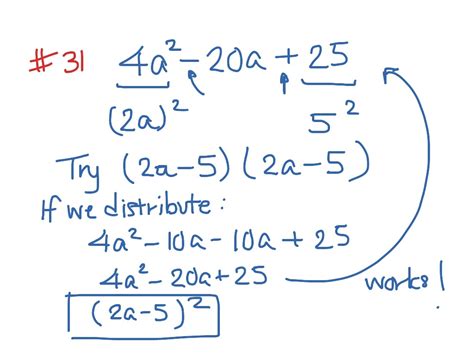 #31 4a² - 20a + 25
(2a)² 5²
Try (2a-5)(2a-5)
If we distribute:
4a² - 10a - 10a + 25
4a² - 20a + 25 works!
(2a-5)²